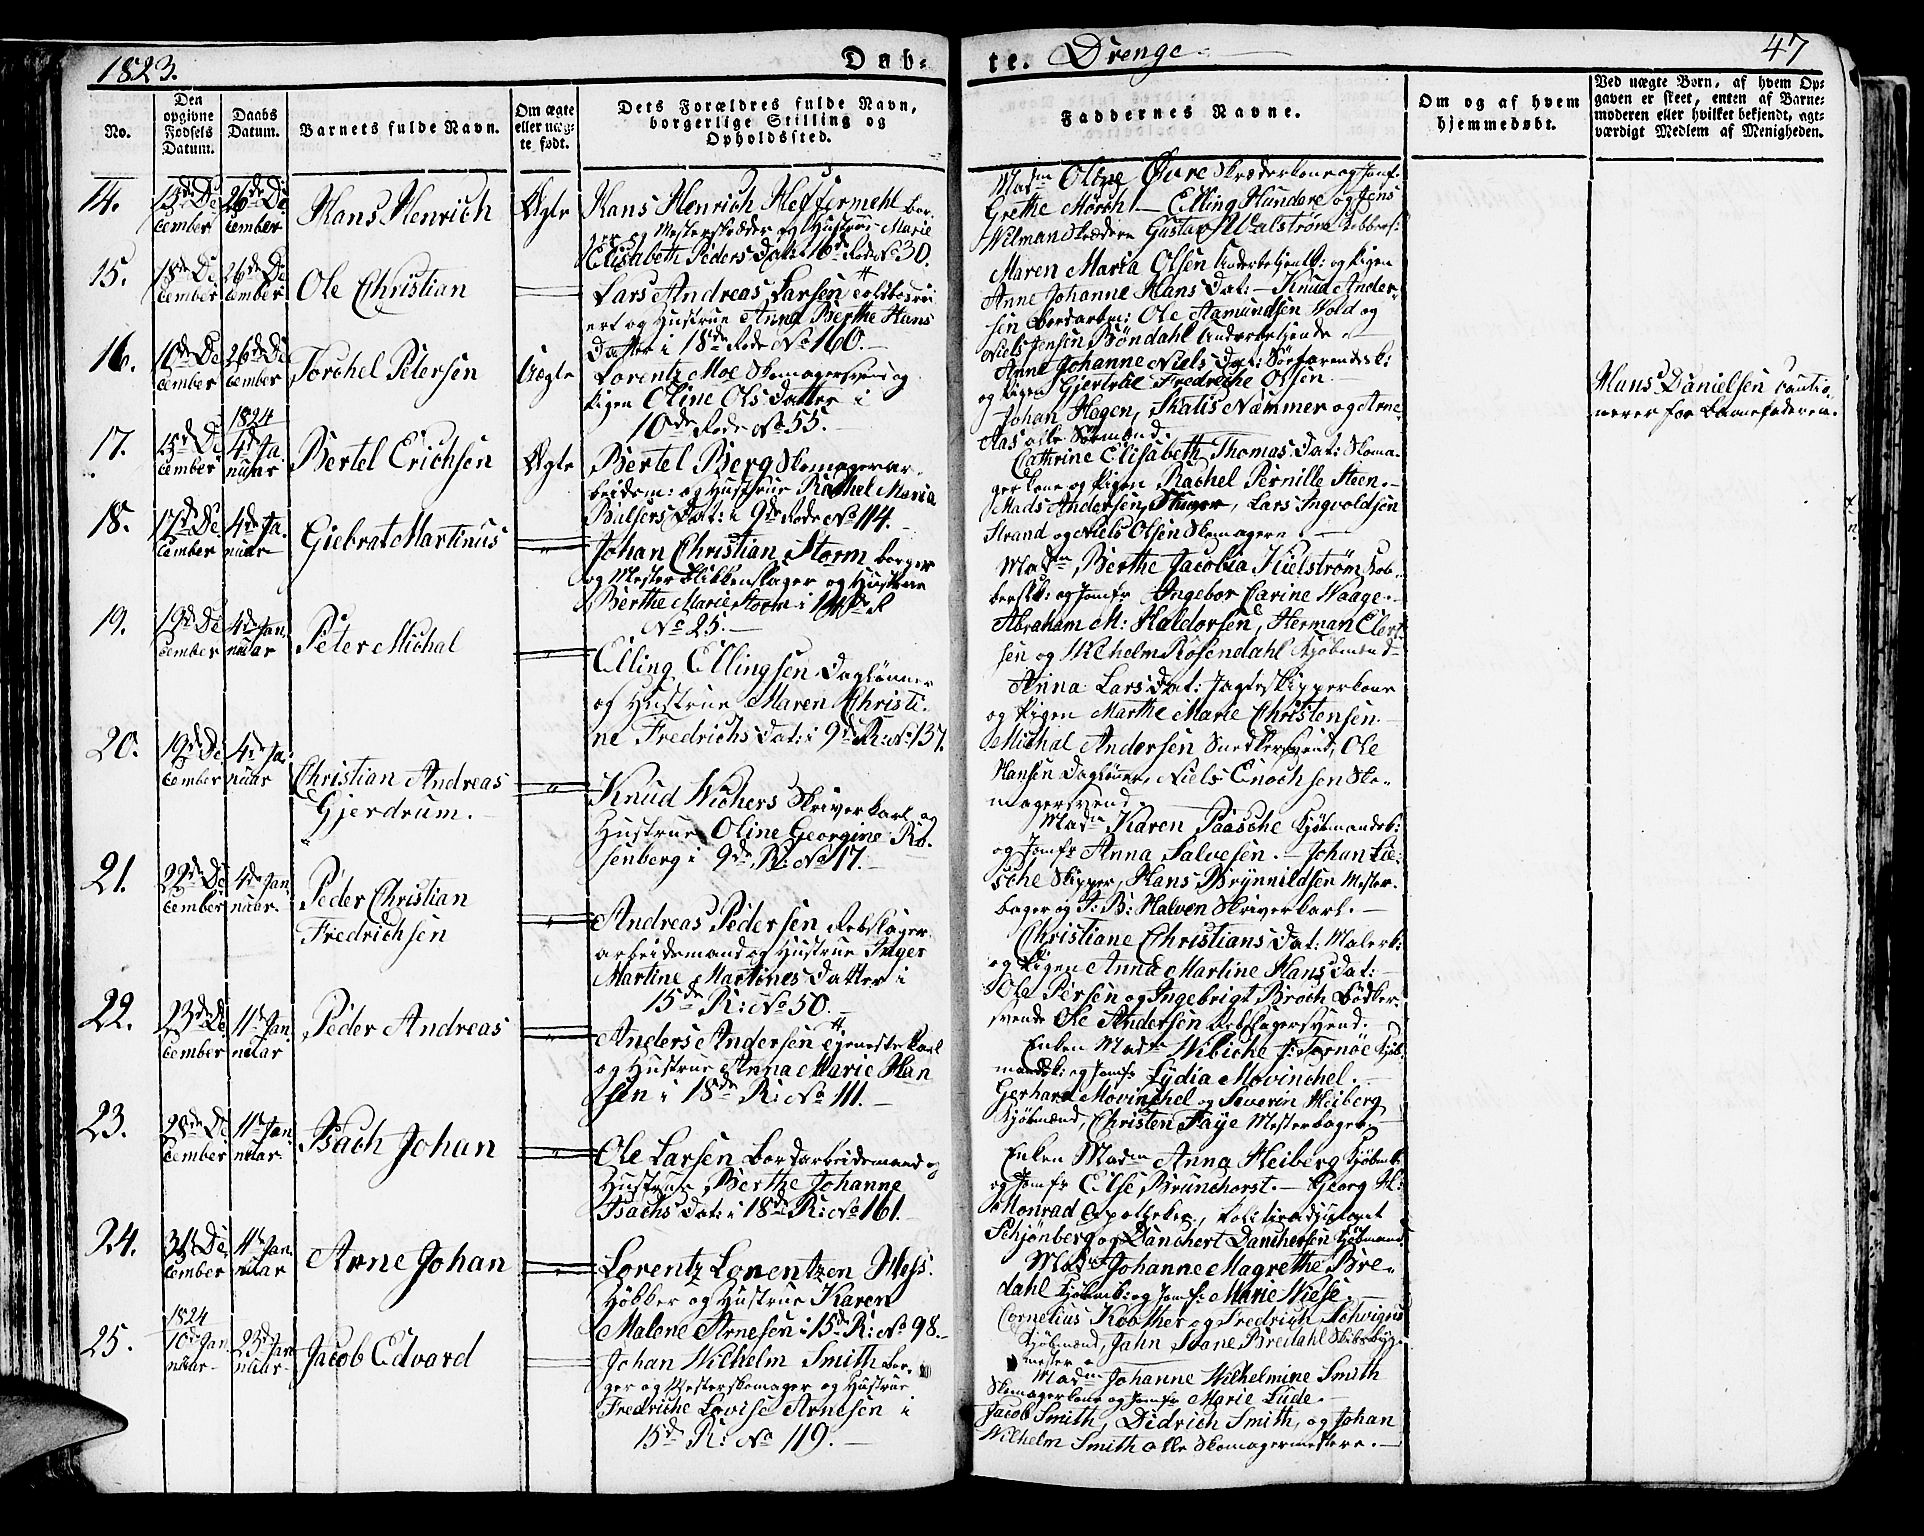 1823.
Døb-
te. Drenge
47
No.
Den
opgivne
Fødsels
Datum.
Daabs
Datum.
Barnets fulde Navn.
Om ægte
eller uæg-
te født.
Dets Forældres fulde Navn,
borgerlige Stilling og
Opholdssted.
Faddernes Navne.
Om og af hvem
hjemmedøbt.
Ved uægte Børn, af hvem Op-
gaven er skeet, enten af Barne-
moderen eller hvilket bekjendt, agt-
værdigt Medlem af Menigheden.
14.
15de De
cember
26de De
cember
Hans Henrich
Ægte
Hans Henrich Heffermehl bor-
ger og Mesterskræder og Hustrue Marie
Elisabeth Peders Dat: 16de Rode No 30.
Madm Oline Øvre Skræderkone og Jomf.
Grethe Mörch — Elling Hundere og Jens
Wilmand Skrædere Gustav Walström
15.
18de De
cember
26de De
cember
Ole Christian
Lars Andreas Larsen
og Hustrue Anna Berthe Hans
Datter i 18de Rode No 160.
Maren Maria Olsen og Pigen
Anne Johanne Hans Dat: — Knud Ander-
sen Bordarbm: Ole Aamundsen Wold og
Niels Jensen Bröndahl
16.
16de De
cember
26de De
cember
Torchel Petersen
Uægte
Lorentz Moe Skomagersvend og
Pigen Oline Ols Datter i
10de Rode No 55.
Anne Johanne Niels Dat:
og Pigen Fredriche Olsen
Johan Hagen, Nummer og Arne
Aas alle Sömænd.
Hans Danielsen cautio-
nerer for Barnefaderen.
17.
15de De
cember
1824
4de Ja-
nuar
Bertel Erichsen
Ægte
Bertel Berg Skomagerar-
beidsm: og Hustrue Rachel Maria
Balsers Dat: i 9de Rode No 114.
Cathrine Elisabeth Thomas Dat: Skoma-
gerkone og Pigen Rachel Pernille Steen.
Mads Andersen, Lars Ingvoldsen
Strand og Niels Olsen Skomagere
18.
17de De
cember
4de Ja-
nuar
Giebrat Martinus
Johan Christian Storm borger
og Mester Blikkenslager og Hustrue
Berthe Marie Storm i 14de R
No 25.
Madm Berthe Jacobia Kielström Kob-
bersk: og Jomfr Ingebor Carine Waage.
Abraham M: Haldorsen, Herman Elert-
sen og Wilhelm Rosendahl Kjöbmend
19.
19de De
cember
4de Jan.
nuar
Peter Michal
Elling Ellingsen Daglönner
og Hustrue Maren Christi-
ne Fredrichs Dat: i 9de R: No 137.
Anna Lars Dat: Jagteskipperkone
og Pigen Marthe Marie Christensen
Michal Andersen Snedkersvend, Ole
Hansen Daglönner, Niels Enochsen Sko-
magersvend
20.
19de De
cember
4de Ja-
nuar
Christian Andreas
Gjerdrum.
Knud Wichers Skriverkarl og
Hustrue Oline Georgine Ro-
senberg i 9de R: No 17.
Madm Karen Paasche Kjöbmandsk:
og Jomfr Anna Salvesen. — Johan Lie-
sche Skipper, Hans Brynnildsen Mester-
bager og J: B: Halven Skriverkarl.
21.
22de De
cember
4de Jan
nuar.
Peder Christian
Fredrichsen
Andreas Pedersen Rebslager-
arbeidsmand og Hustrue Inger
Martine Martines Datter i
15de R: No 50.
Christiane Christians Dat: Malerk:
og Pigen Anna Martine Hans Dat:
Ole Persen og Ingebrigt Broch Bödker-
svende Ole Andersen Rebslagersvend.
22.
23de De
cember
11te Jan
nuar
Peder Andreas
Anders Andersen Tjenestekarl
og Hustrue Anna Marie Han
sen i 18de R: No 111.
Enken Madm Wibiche f: Tornöe Kjöb-
mandsk: og Jomfr Lydia Movinchel.
Gerhard Movinchel og Severin Heiberg
Kjöbmænd, Christen Faye Mesterbager
23.
28de De
cember
11te Jan
nuar
Isach Johan
Ole Larsen Bordarbeidsmand og
Hustrue Berthe Johanne
Isachs Dat: i 18de R: No 161.
Enken Madm Anna Heiberg Kjöbmk:
og Jomfr Else Brunchorst. — Georg H:
Monrad Apotheker,
Schjönberg og Danchert Danchersen Kjöbmand
24.
31te De
cember
11te Jan.
nuar
Arne Johan
Lorentz Lorentzen Mess-
Höbber og Hustrue Karen
Malene Arnesen i 15de R: No 98.
Madm Johanne Magrethe Bre-
dahl Kjöbmk: og Jomfr: Marie Wiese.
Cornelius Kahrs og Fredrich
Kjöbmænd, Jahn Loane Bredahl Skibsbygg-
mester.
25.
1824
10de Jan
nuar
25de Jan
nuar
Jacob Edvard
Johan Wilhelm Smith Bor-
ger og Mesterskomager og Hustrue
Fredriche Lovise Arnesen i
15de R: No 119.
Madm Johanne Wilhelmine Smith
Skomagerkone og Jomfr Marie Lude
Jacob Smith, Didrich Smith, og Johan
Wilhelm Smith alle Skomagermestere.